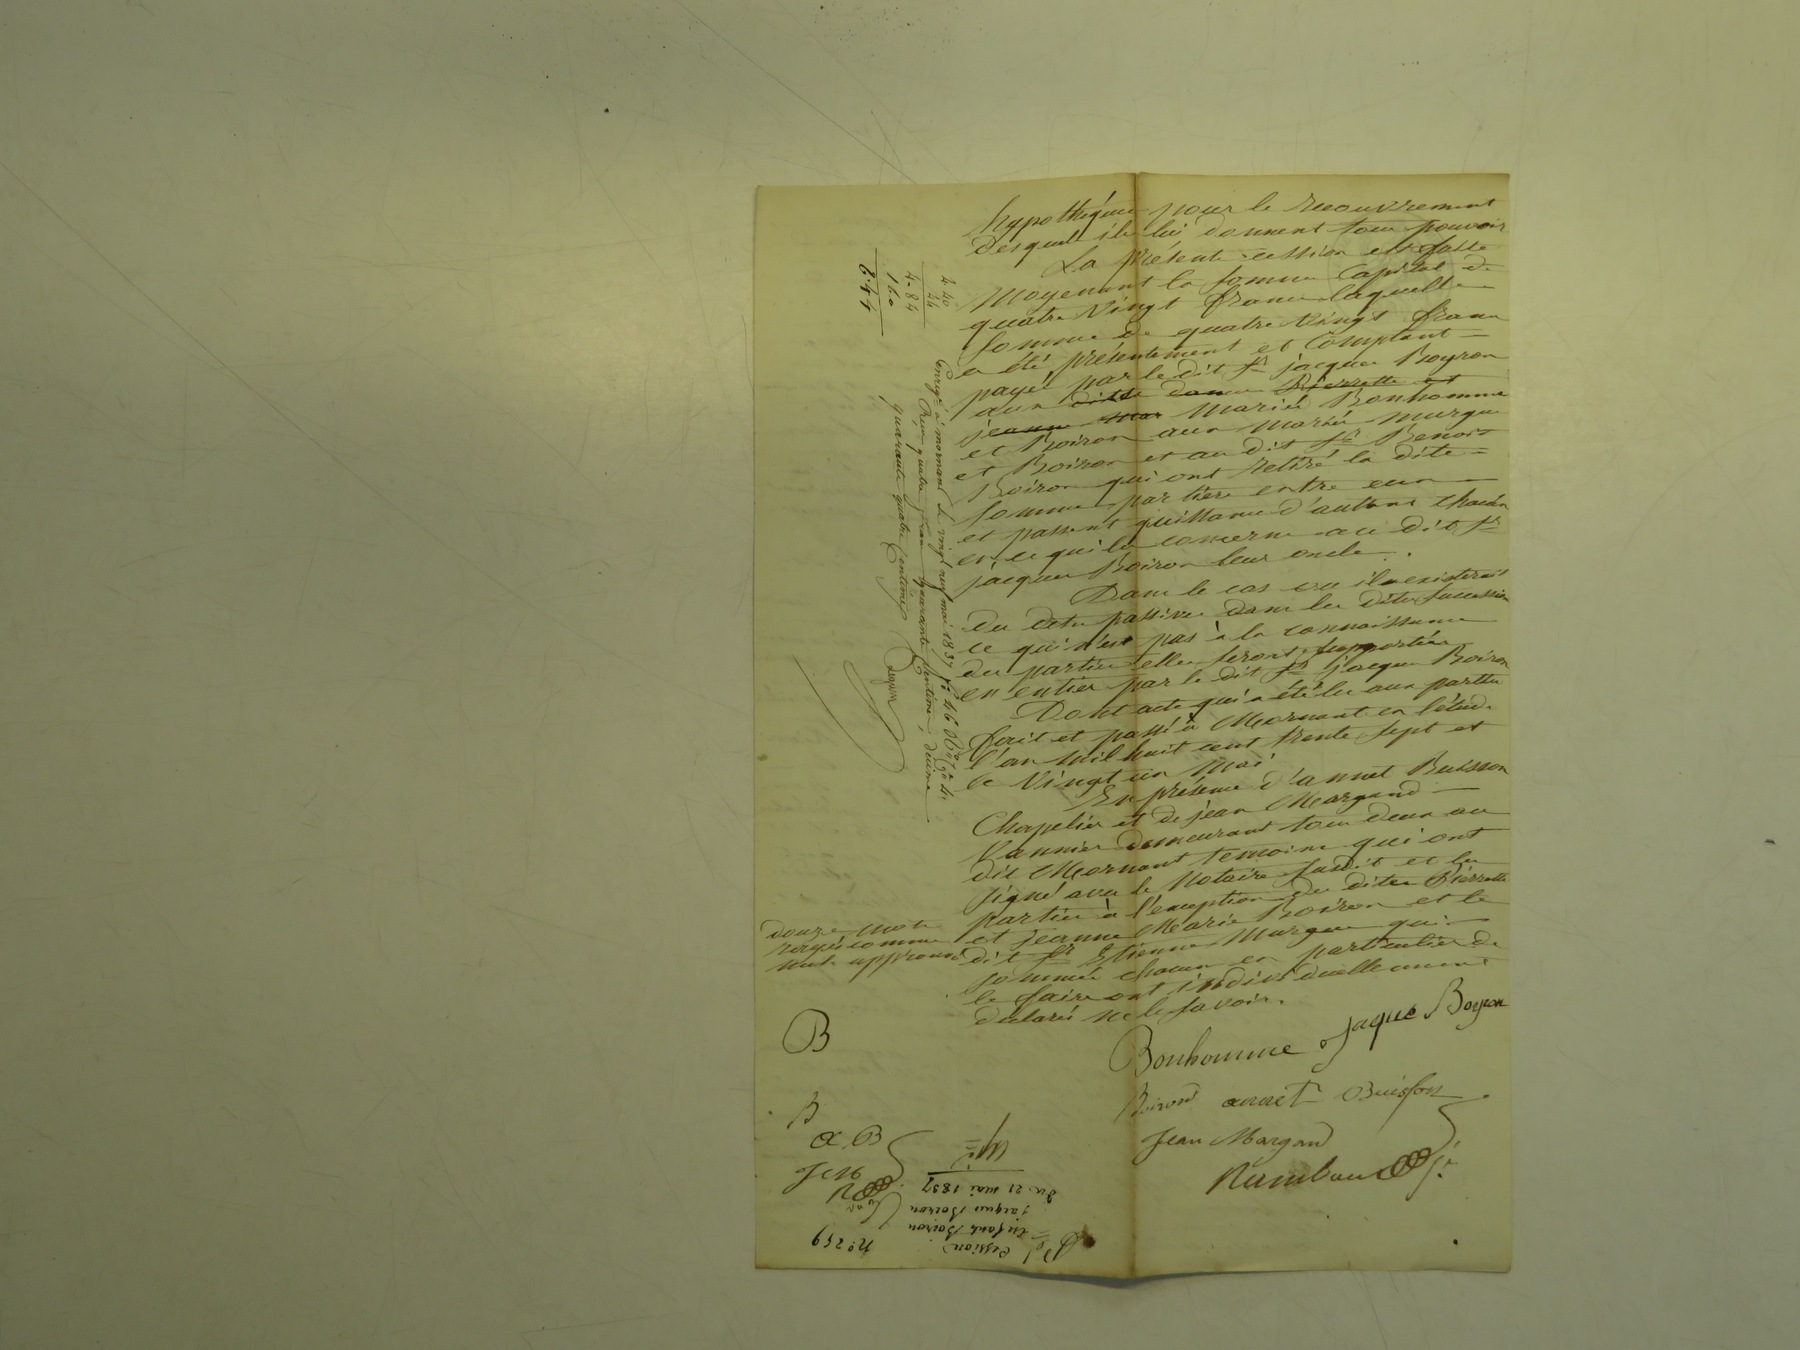 hypothéques pour le recouvrement
desquels ils lui donnent tous pouvoirs
La présente cession est faite
Moyenant la somme Capital de
quatre Vingt francs laquelle
somme de quatre Vingt francs
a été présentement et Comptant
payée par le dit Sr jacques Boyron
aux ditte dames Pierrette et
jeanne Mar Mariés Bonhomme
et Boiron aux Mariés Murgue
et Boiron et au dit Sr Benoit
Boiron qui ont retiré la dite
somme par tiers entre eux
et passent quittance d'autant chacun
en ce qui les concerne au dit Sr
jacques Boiron leur oncle.
Dans le cas ou il existerait
des dettes passives dans les dites successions
ce qui n'est pas à la connaissance
des parties elles seront supportées
en entier par le dit Sr jacques Boiron
Dont acte qui a été lu aux parties
fait et passé à Mornant en l'étude
l'an Mil huit cent trente sept et
le Vingt un Mai
En présence d'annet Buisson
Chapelier et de jean Margand
Vannier demeurant tous deux au
dit Mornant temoins qui ont
signé avec le Notaire susdit et les
parties à l'exception des dites Pierrette
et jeanne Marie Boiron et le
dit Sr Etienne Murgue qui
sommés chacun en particulier de
le faire ont individuellement
declaré ne le savoir.
Bonhomme jaque Boyron
Boiron annet Buisson
Jean Margand
Rambaud
douze mots
rayés comme
nuls approuvé
B
B
a B
J M
R
4 40
44
4 84
1 60
6 44
Enregé à mornant le vingt neuf mai 1837 fo 46
Reçu quatre francs quarante centimes, décime
quarante quatre centimes
No 259
Cession
enfants Boiron
jacques Boiron
Du 21 mai 1837